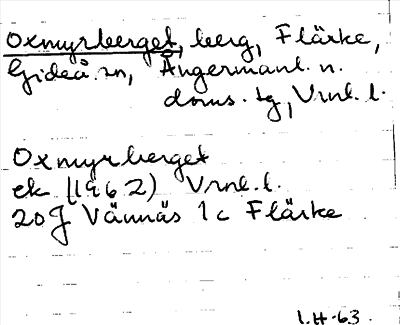 Oxmyrberget, berg, Flärke,
Gideå sn, Ångermanl. n.
doms. tg, Vrnl. l.
Oxmyrberget
ek (1962) Vrnl. l.
20J Vännäs 1c Flärke
I.H.63.